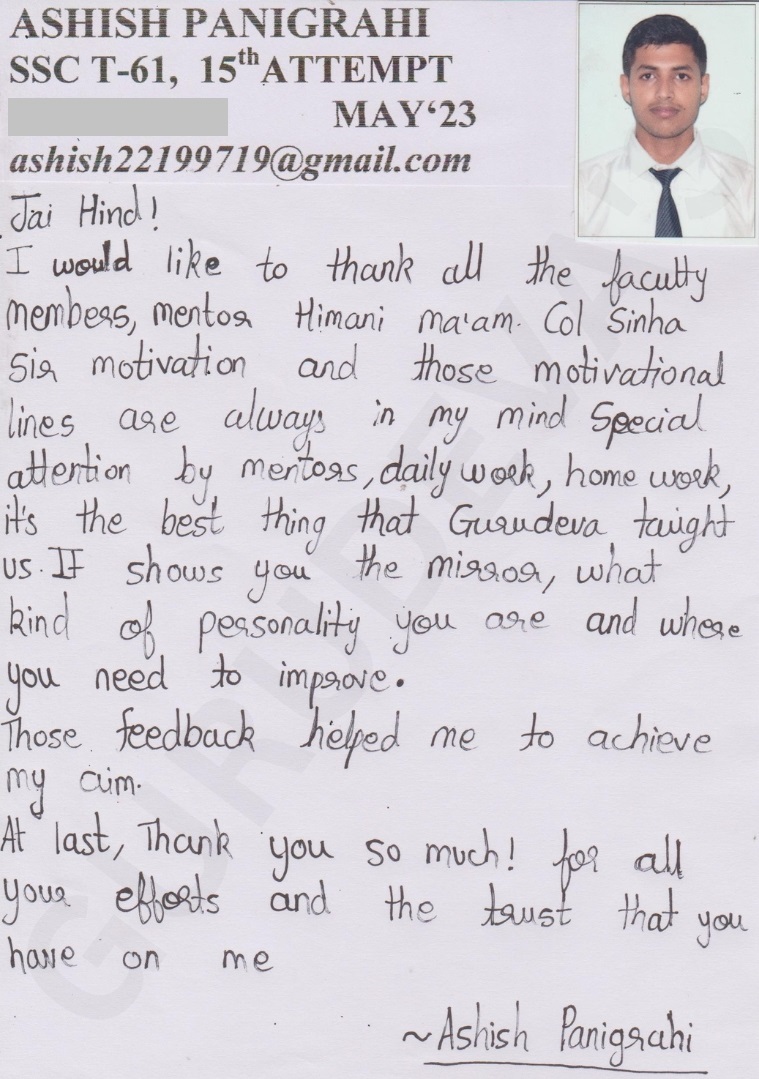 ASHISH PANIGRAHI
SSC T-61, 15th ATTEMPT
MAY‘23
ashish22199719@gmail.com
Jai Hind!
I would like to thank all the faculty
members, mentor Himani ma'am. Col Sinha
Sir motivation and those motivational
lines are always in my mind Special
attention by mentors, daily work, home work,
it's the best thing that Gurudeva taught
us. It shows you the mirror, what
kind of personality you are and where
you need to improve.
Those feedback helped me to achieve
my aim.
At last, Thank you so much! for all
your efforts and the trust that you
have on me
~Ashish Panigrahi
GURUDEVA'S